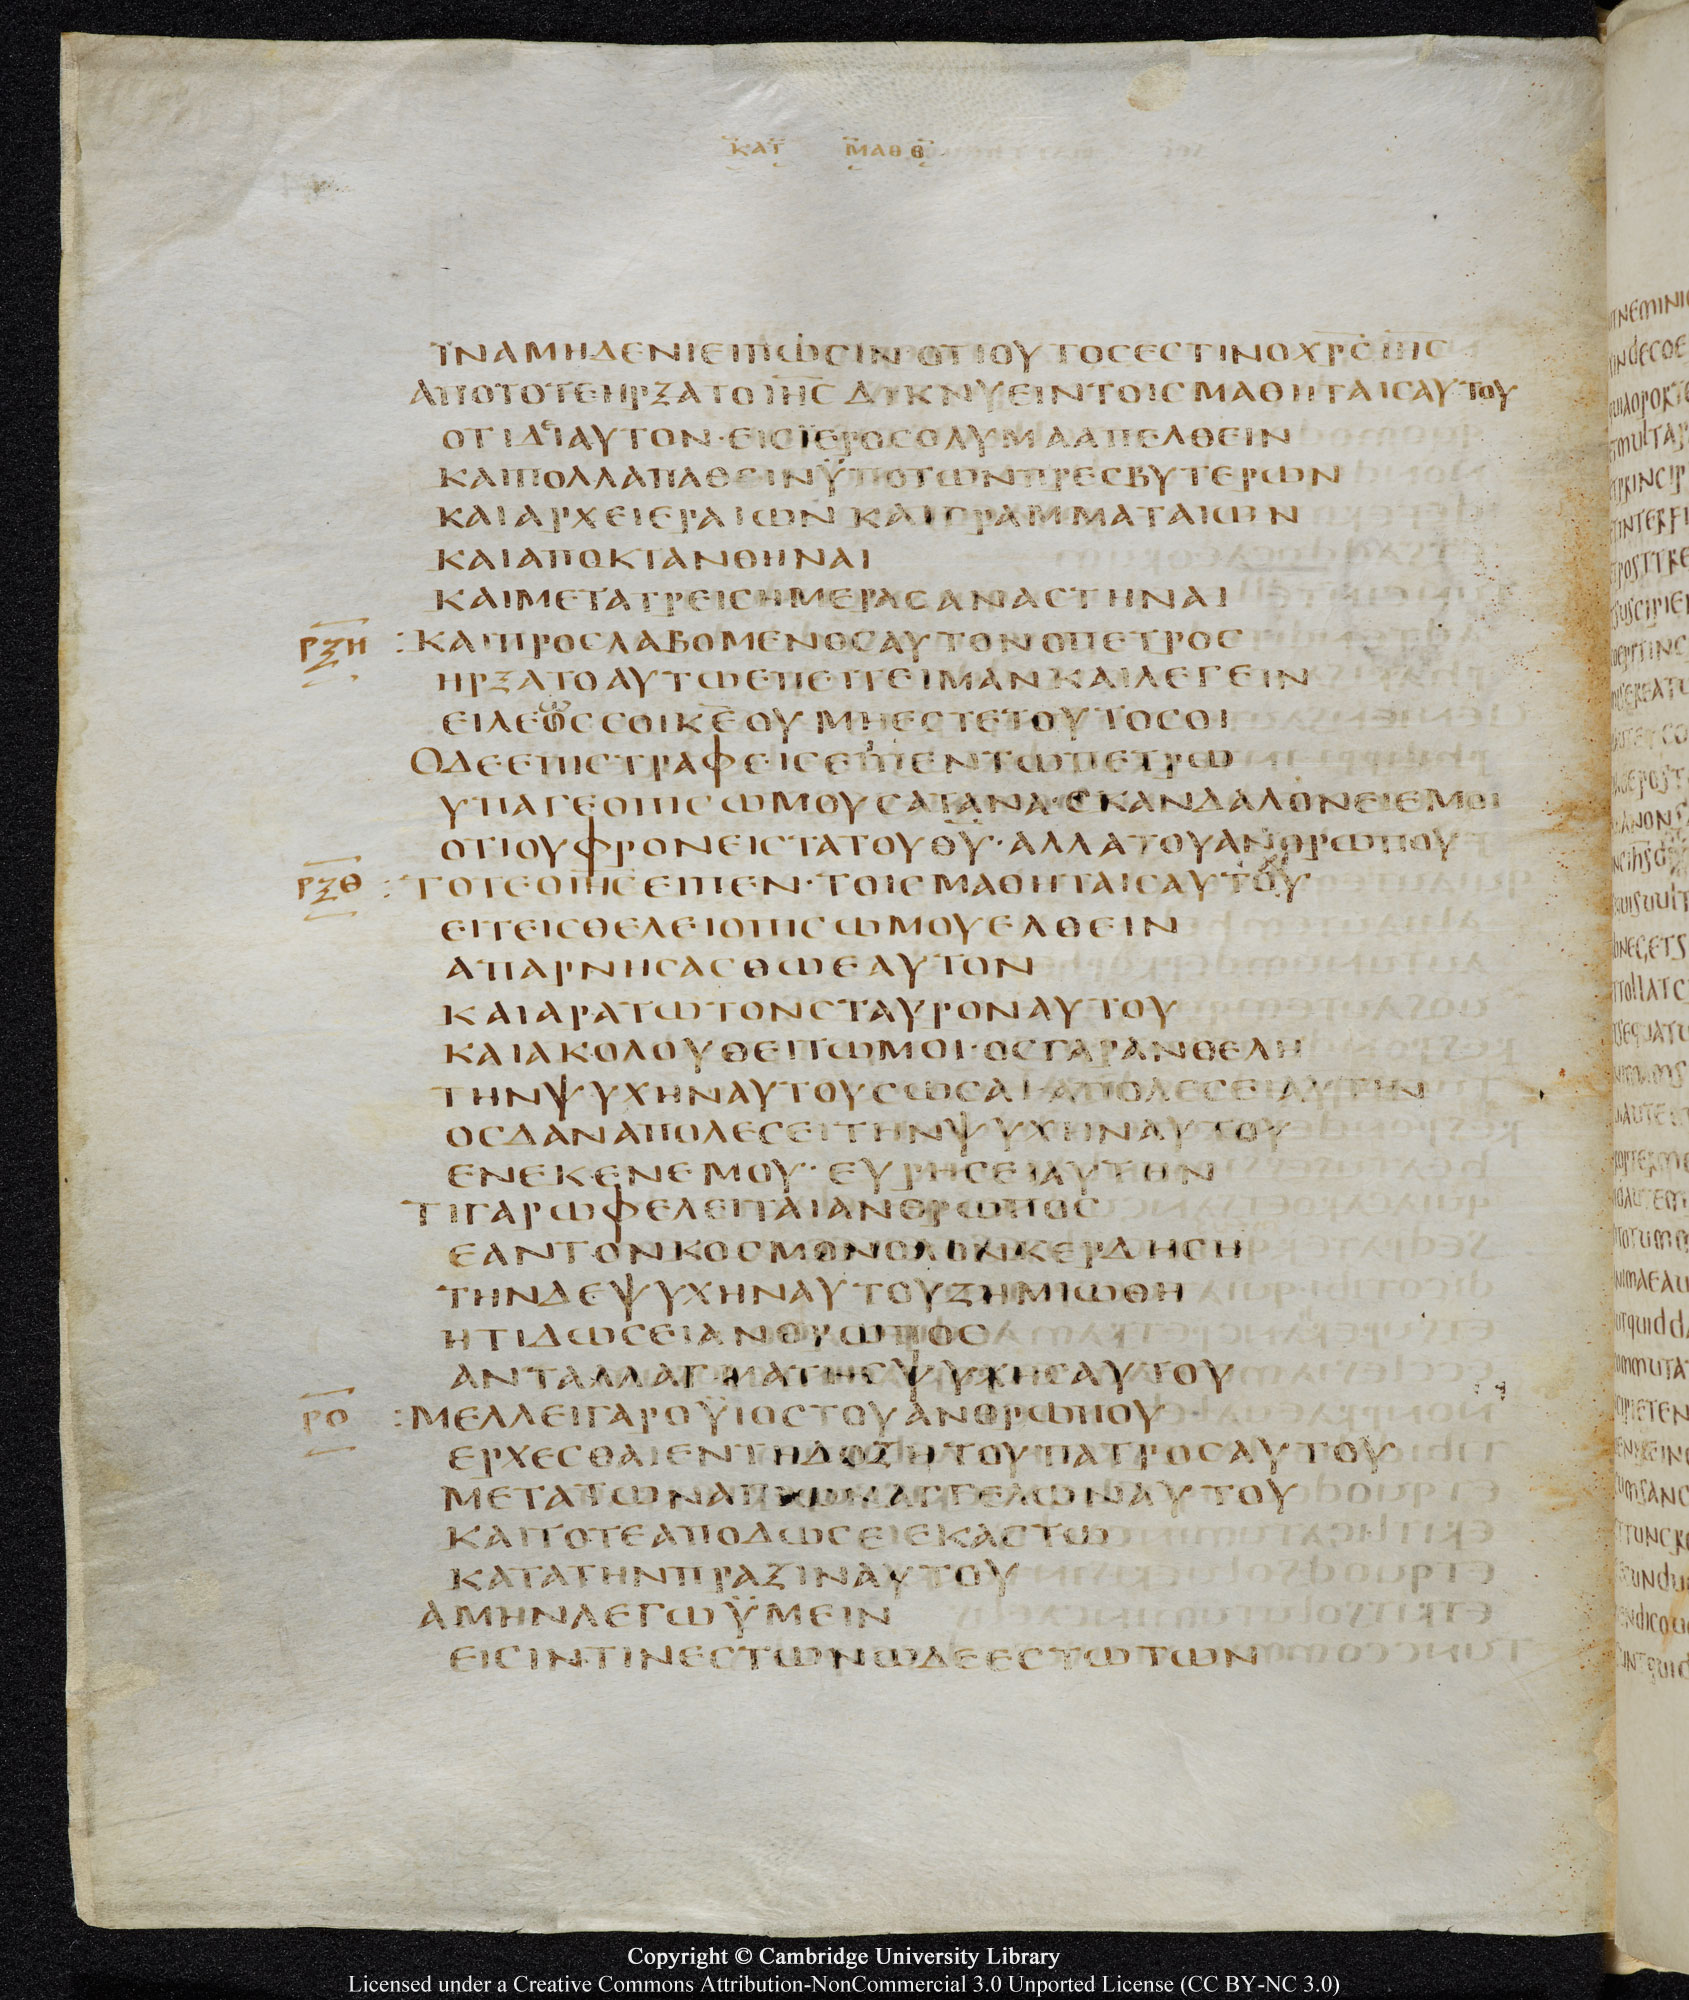 ΚΑΤ ΜΑΘΘ
ΪΝΑΜΗΔΕΝΙΕΙΠΩСΙΝ·ΟΤΙΟΥΤΟСΕСΤΙΝΟΧΡС ΙΗС
ΑΠΟΤΟΤΕΗΡΞΑΤΟΙΗС ΔΙΚΝΥΕΙΝΤΟΙСΜΑΘΗΤΑΙСΑΥΤΟΥ
ΟΤΙΔΙΑΥΤΟΝ·ΕΙСΪΕΡΟСΟΛΥΜΑΑΠΕΛΘΕΙΝ
ΚΑΙΠΟΛΛΑΠΑΘΕΙΝΫΠΟΤΩΝΠΡΕСΒΥΤΕΡΩΝ
ΚΑΙΑΡΧΕΙΕΡΑΙΩΝ ΚΑΙΓΡΑΜΜΑΤΑΙΩΝ
ΚΑΙΑΠΟΚΤΑΝΘΗΝΑΙ
ΚΑΙΜΕΤΑΤΡΕΙСΗΜΕΡΑСΑΝΑСΤΗΝΑΙ
ΡΞΗ :ΚΑΙΠΡΟСΛΑΒΟΜΕΝΟСΑΥΤΟΝΟΠΕΤΡΟС
ΗΡΞΑΤΟΑΥΤΩΕΠΕΙΤΕΙΜΑΝΚΑΙΛΕΓΕΙΝ
ΕΙΛΕΟССΟΙΚΕΟΥΜΗΕСΤΕΤΟΥΤΟСΟΙ
ΟΔΕΕΠΙСΤΡΑΦΕΙСΕΙΠΕΝΤΩΠΕΤΡΩ
ΥΠΑΓΕΟΠΙСΩΜΟΥСΑΤΑΝΑ·СΚΑΝΔΑΛΟΝΕΙΕΜΟΙ
ΟΤΙΟΥΦΡΟΝΕΙСΤΑΤΟΥΘΥ·ΑΛΛΑΤΟΥΑΝΘΡΩΠΟΥ
ΡΞΘ :ΤΟΤΕΟΙΗСΕΙΠΕΝ·ΤΟΙСΜΑΘΗΤΑΙСΑΥΤΟΥ
ΕΙΤΕΙСΘΕΛΕΙΟΠΙСΩΜΟΥΕΛΘΕΙΝ
ΑΠΑΡΝΗСΑСΘΩΕΑΥΤΟΝ
ΚΑΙΑΡΑΤΩΤΟΝСΤΑΥΡΟΝΑΥΤΟΥ
ΚΑΙΑΚΟΛΟΥΘΕΙΤΩΜΟΙ·ΟСΓΑΡΑΝΘΕΛΗ
ΤΗΝΨΥΧΗΝΑΥΤΟΥСΩСΑΙ·ΑΠΟΛΕСΕΙΑΥΤΗΝ
ΟСΔΑΝΑΠΟΛΕСΕΙΤΗΝΨΥΧΗΝΑΥΤΟΥ
ΕΝΕΚΕΝΕΜΟΥ·ΕΥΡΗСΕΙΑΥΤΗΝ
ΤΙΓΑΡΩΦΕΛΕΙΤΑΙΑΝΘΡΩΠΟС
ΕΑΝΤΟΝΚΟСΜΟΝΟΛΟΝΚΕΡΔΗСΗ
ΤΗΝΔΕΨΥΧΗΝΑΥΤΟΥΖΗΜΙΩΘΗ
ΗΤΙΔΩСΕΙΑΝΘΡΩΠΟС
ΑΝΤΑΛΛΑΓΜΑΤΗСΨΥΧΗСΑΥΤΟΥ
ΡΟ :ΜΕΛΛΕΙΓΑΡΟΫΙΟСΤΟΥΑΝΘΡΩΠΟΥ
ΕΡΧΕСΘΑΙΕΝΤΗΔΟΞΗΤΟΥΠΑΤΡΟСΑΥΤΟΥ
ΜΕΤΑΤΩΝΑΓΙΩΝΑΓΓΕΛΩΝΑΥΤΟΥ
ΚΑΙΤΟΤΕΑΠΟΔΩСΕΙΕΚΑСΤΩ
ΚΑΤΑΤΗΝΠΡΑΞΙΝΑΥΤΟΥ
ΑΜΗΝΛΕΓΩΫΜΕΙΝ
ΕΙСΙΝΤΙΝΕСΤΩΝΩΔΕΕСΤΩΤΩΝ
Copyright © Cambridge University Library
Licensed under a Creative Commons Attribution-NonCommercial 3.0 Unported License (CC BY-NC 3.0)